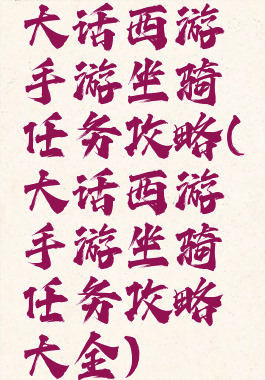 大话西游
手游坐骑
任务攻略(
大话西游
手游坐骑
任务攻略
大全)